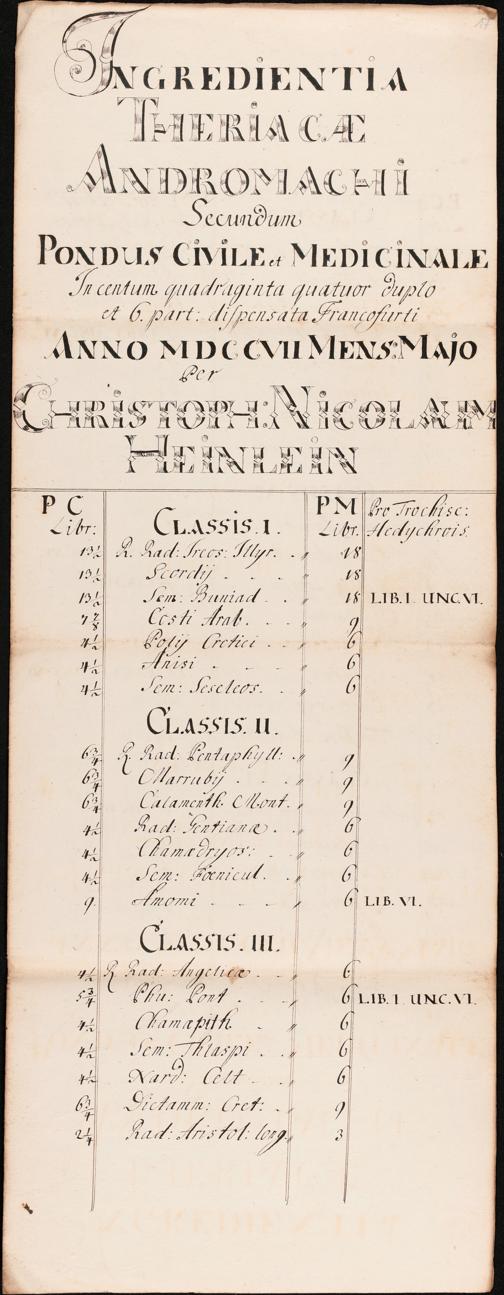 INGREDIENTIA
THERIACÆ
ANDROMACHI
Secundum
PONDUS CIVILE et MEDICINALE
In centum quadraginta quatuor duplo
et 6. part: dispensata Francofurti
ANNO MDCCVII MENS: MAJO
Per
CHRISTOPH: NICOLAUM
HEINLEIN
P C P M Pro Trochisc:
Libr: CLASSIS. I. Libr. Hedychrois.
13½ R. Rad: Ireos: Illyr. " 18
13½ Scordij . . . " 18
13½ Sem: Buniad . . " 18 LIB. I. UNC. VI.
7⅞ Costi Arab. . . " 9
4½ Polij Cretici . . " 6
4½ Anisi . . . " 6
4½ Sem: Seseleos. . . " 6
CLASSIS. II.
6¾ R Rad: Pentaphyll: " 9
6¾ Marrubij . . . " 9
6¾ Calamenth. Mont. " 9
4½ Rad: Gentianæ . . " 6
4½ Chamædryos: . . " 6
4½ Sem: Fœnicul. . . " 6
9 Amomi . . . " 6 LIB. VI.
CLASSIS. III.
4½ R Rad: Angelicæ . . " 6
5¾ Phu: Pont . . " 6 LIB. I. UNC. VI.
4½ Chamæpith . " 6
4½ Sem: Thlaspi . . " 6
4½ Nard: Celt . . " 6
6¾ Dictamm: Cret: . " 9
2¼ Rad: Aristol: long. " 3